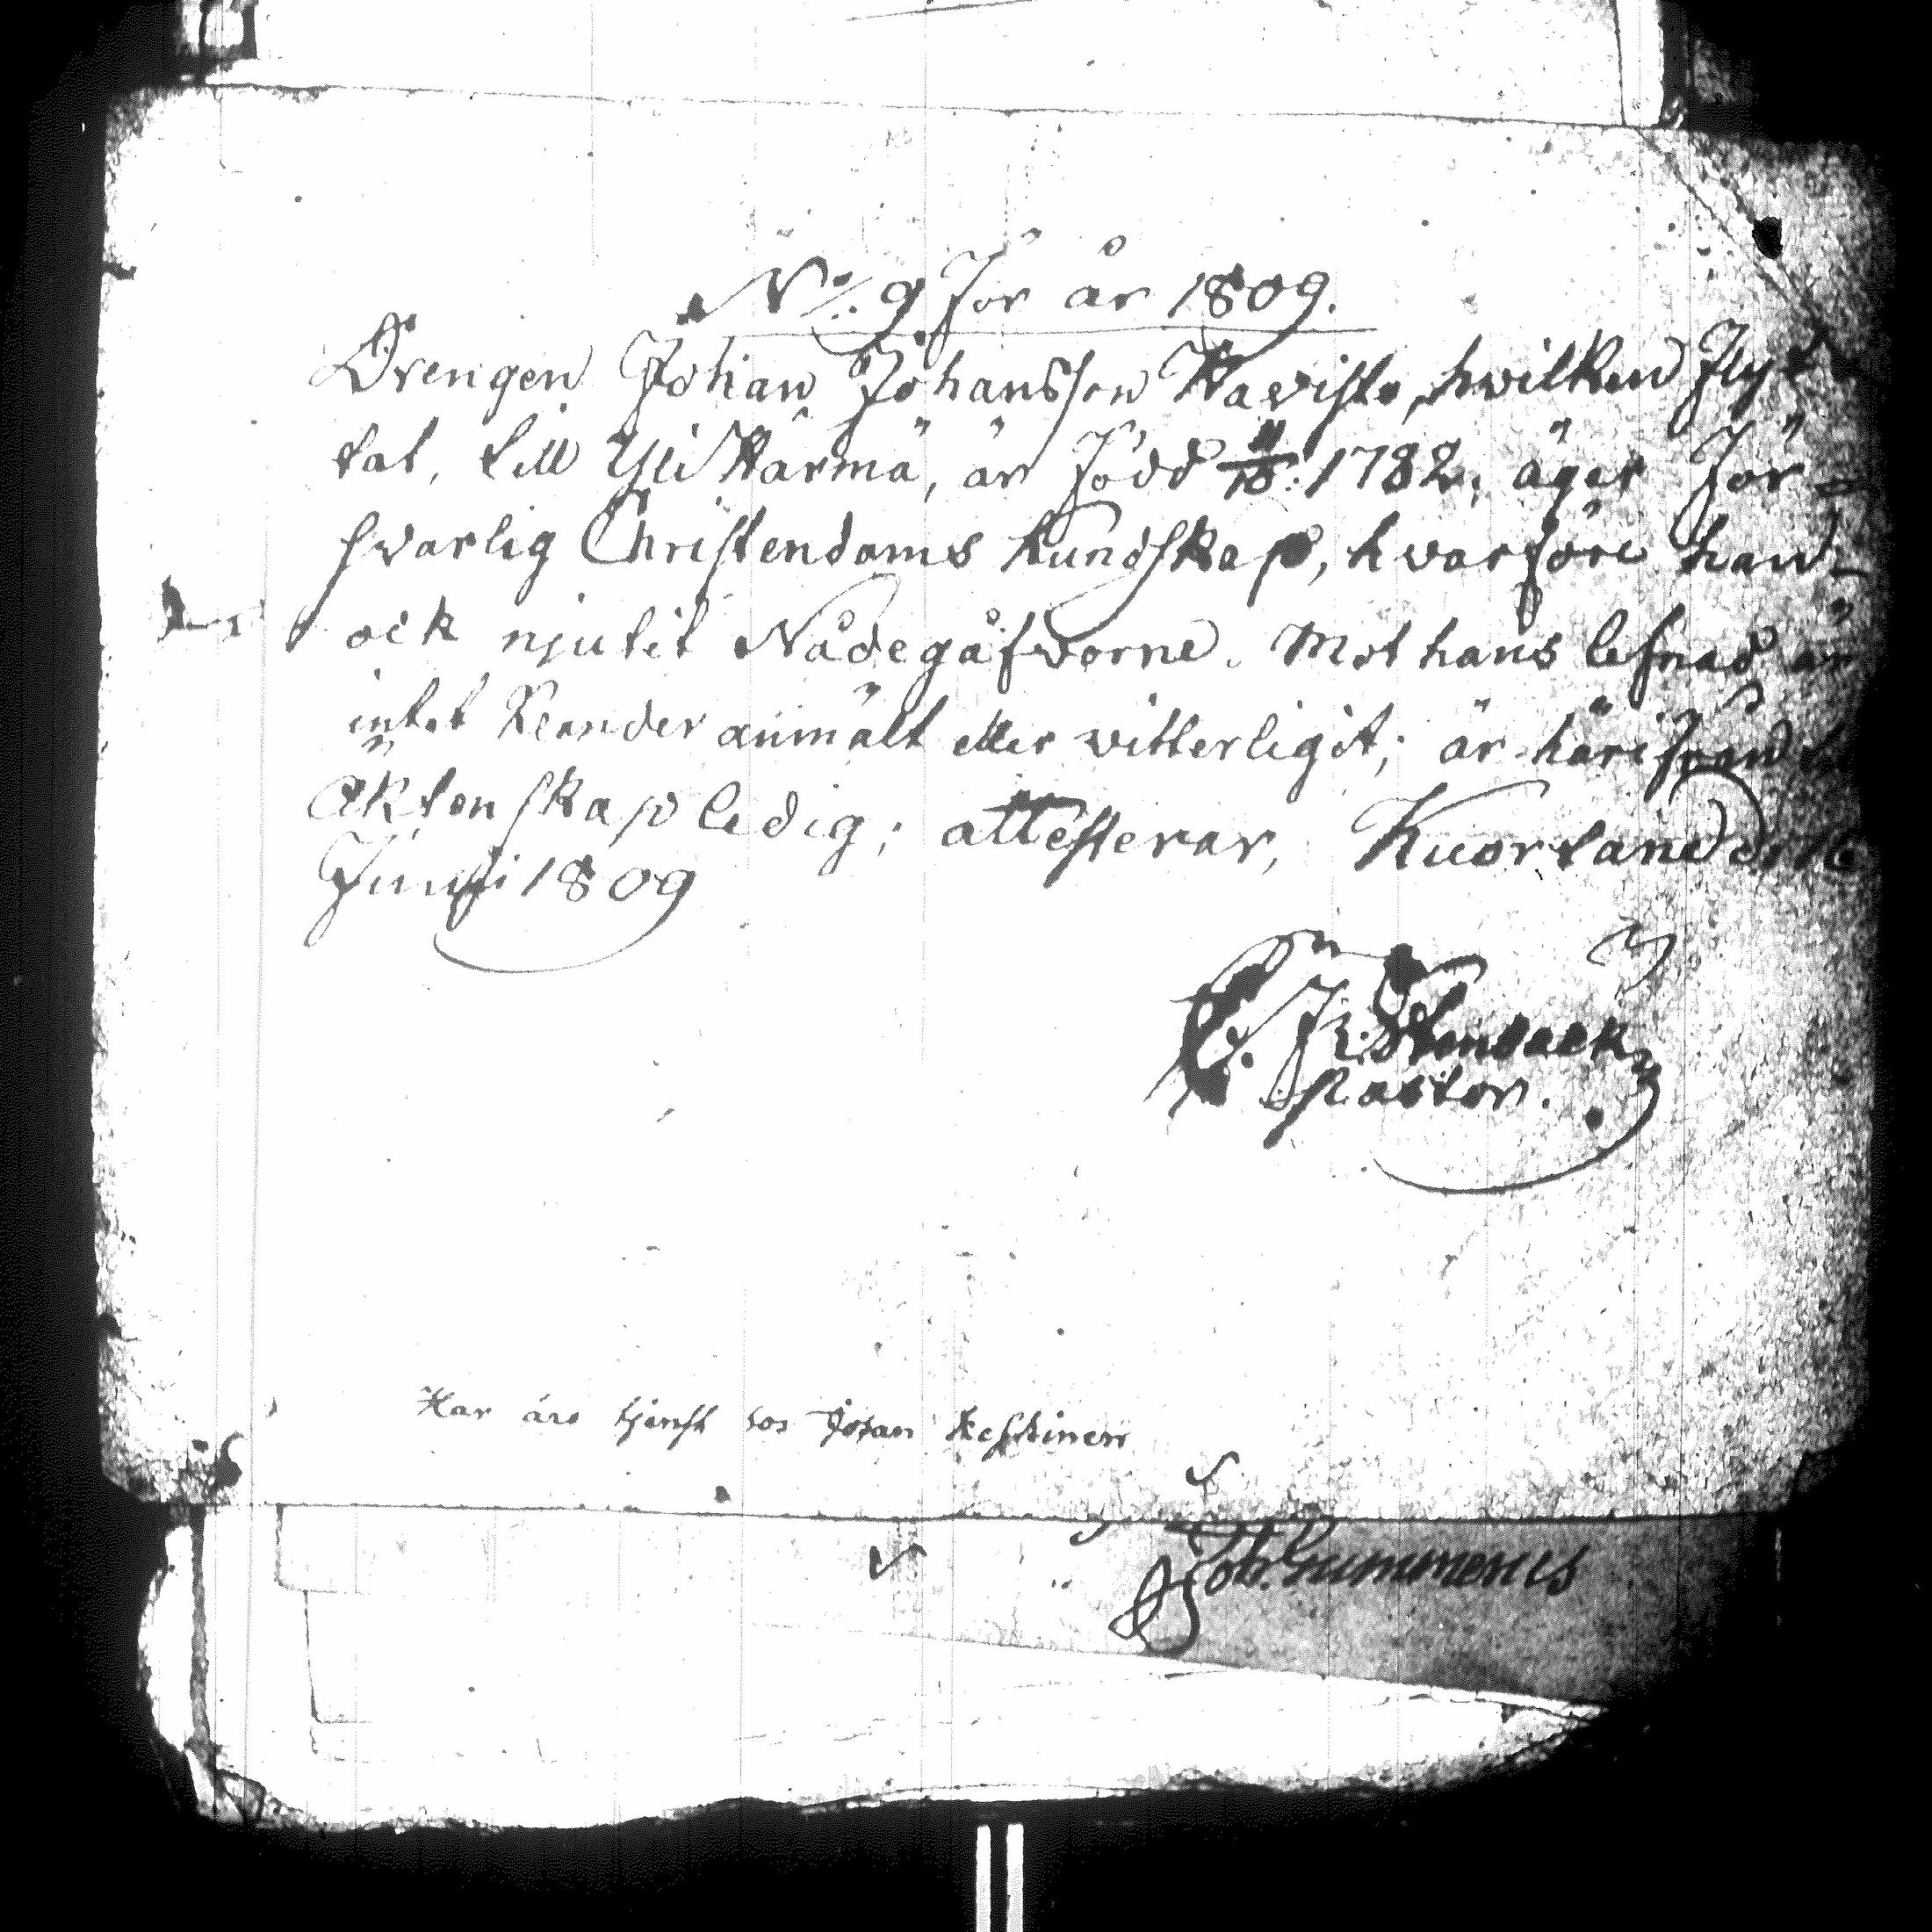 No/. 9 för år 1809.
Drengen Johan Johansson Kavisto, hwilken flyt
tat, till Yli Kärmä, är född 11/10: 1782. äger för=
svarlig Christendoms kundskap, hvarföre han
ock njutit Nådegåfvorne. Mot hans lefnad är
intet klander anmält eller witterligit; är härifrån
Äktenskap ledig; attesterar, Kuortane d. 16
Junii 1809
Pastor.
Har års tjenst hos Johan Keskinen
Joh. Gummerus